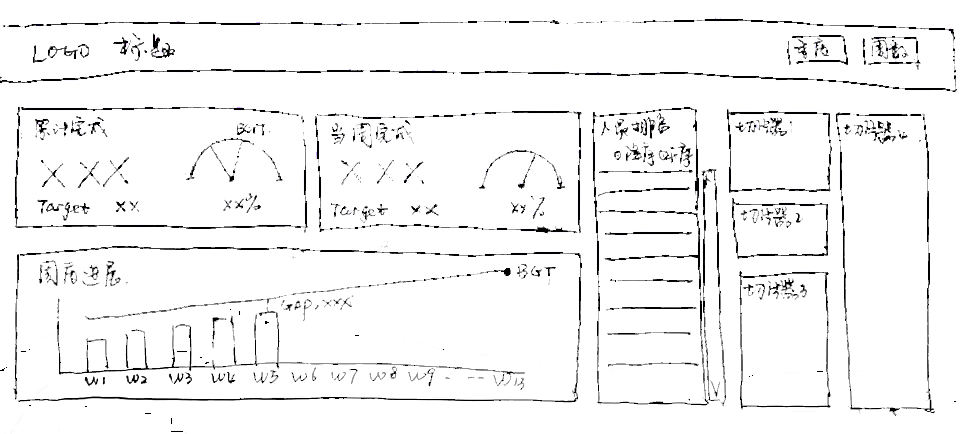 LOGO 标题
季度 周数
累计完成
BGT
XXX
Target XX
XX%
当周完成
XXX
Target XX
XX%
人员排名
降序 升序
切片器1
切片器2
切片器3
切片器4
周度进展
BGT
GAP,XXX
W1 W2 W3 W4 W5 W6 W7 W8 W9 - -- W13